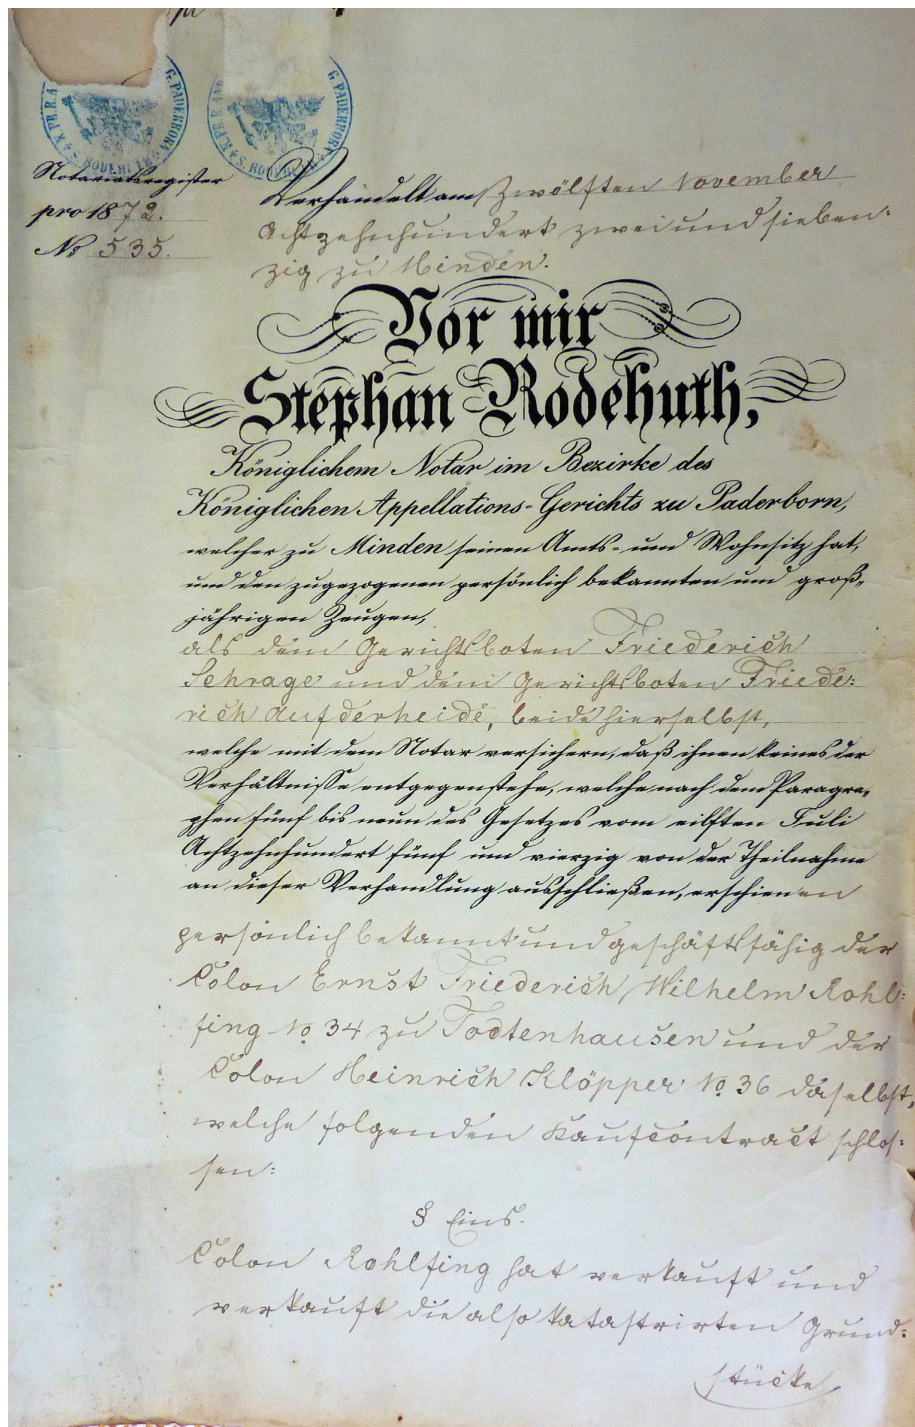 Notariatsregister
pro 1872.
No 535.
Verhandelt am Zwölften November
Achtzehnhundert zwei und sieben-
zig zu Minden.
Vor mir
Stephan Rodehuth,
Königlichem Notar im Bezirke des
Königlichen Appellations-Gerichts zu Paderborn,
welcher zu Minden seinen Amts- und Wohnsitz hat,
und den zugezogenen persönlich bekannten und groß-
jährigen Zeugen,
als dem Gerichtsboten Friederich
Schrage und dem Gerichtsboten Friede-
rich Aufderheide, beide hierselbst,
welche mit dem Notar versichern, daß ihnen keines der
Verhältnisse entgegenstehe, welche nach dem Paragra-
phen fünf bis neun des Gesetzes vom eilften Juli
Achtzehnhundert fünf und vierzig von der Theilnahme
an dieser Verhandlung ausschließen, erschienen
persönlich bekannt und geschäftsfähig der
Colon Ernst Friederich Wilhelm Rohl-
fing No 34 zu Todtenhausen und der
Colon Heinrich Klöpper No 36 daselbst,
welche folgenden Kaufcontract schlos-
sen:
§ Eins.
Colon Rohlfing hat verkauft und
verkauft die also katastrirten Grund-
stücke